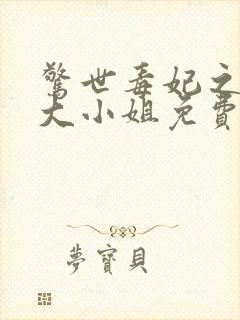 驚世毒妃之
大小姐免費
夢寶貝